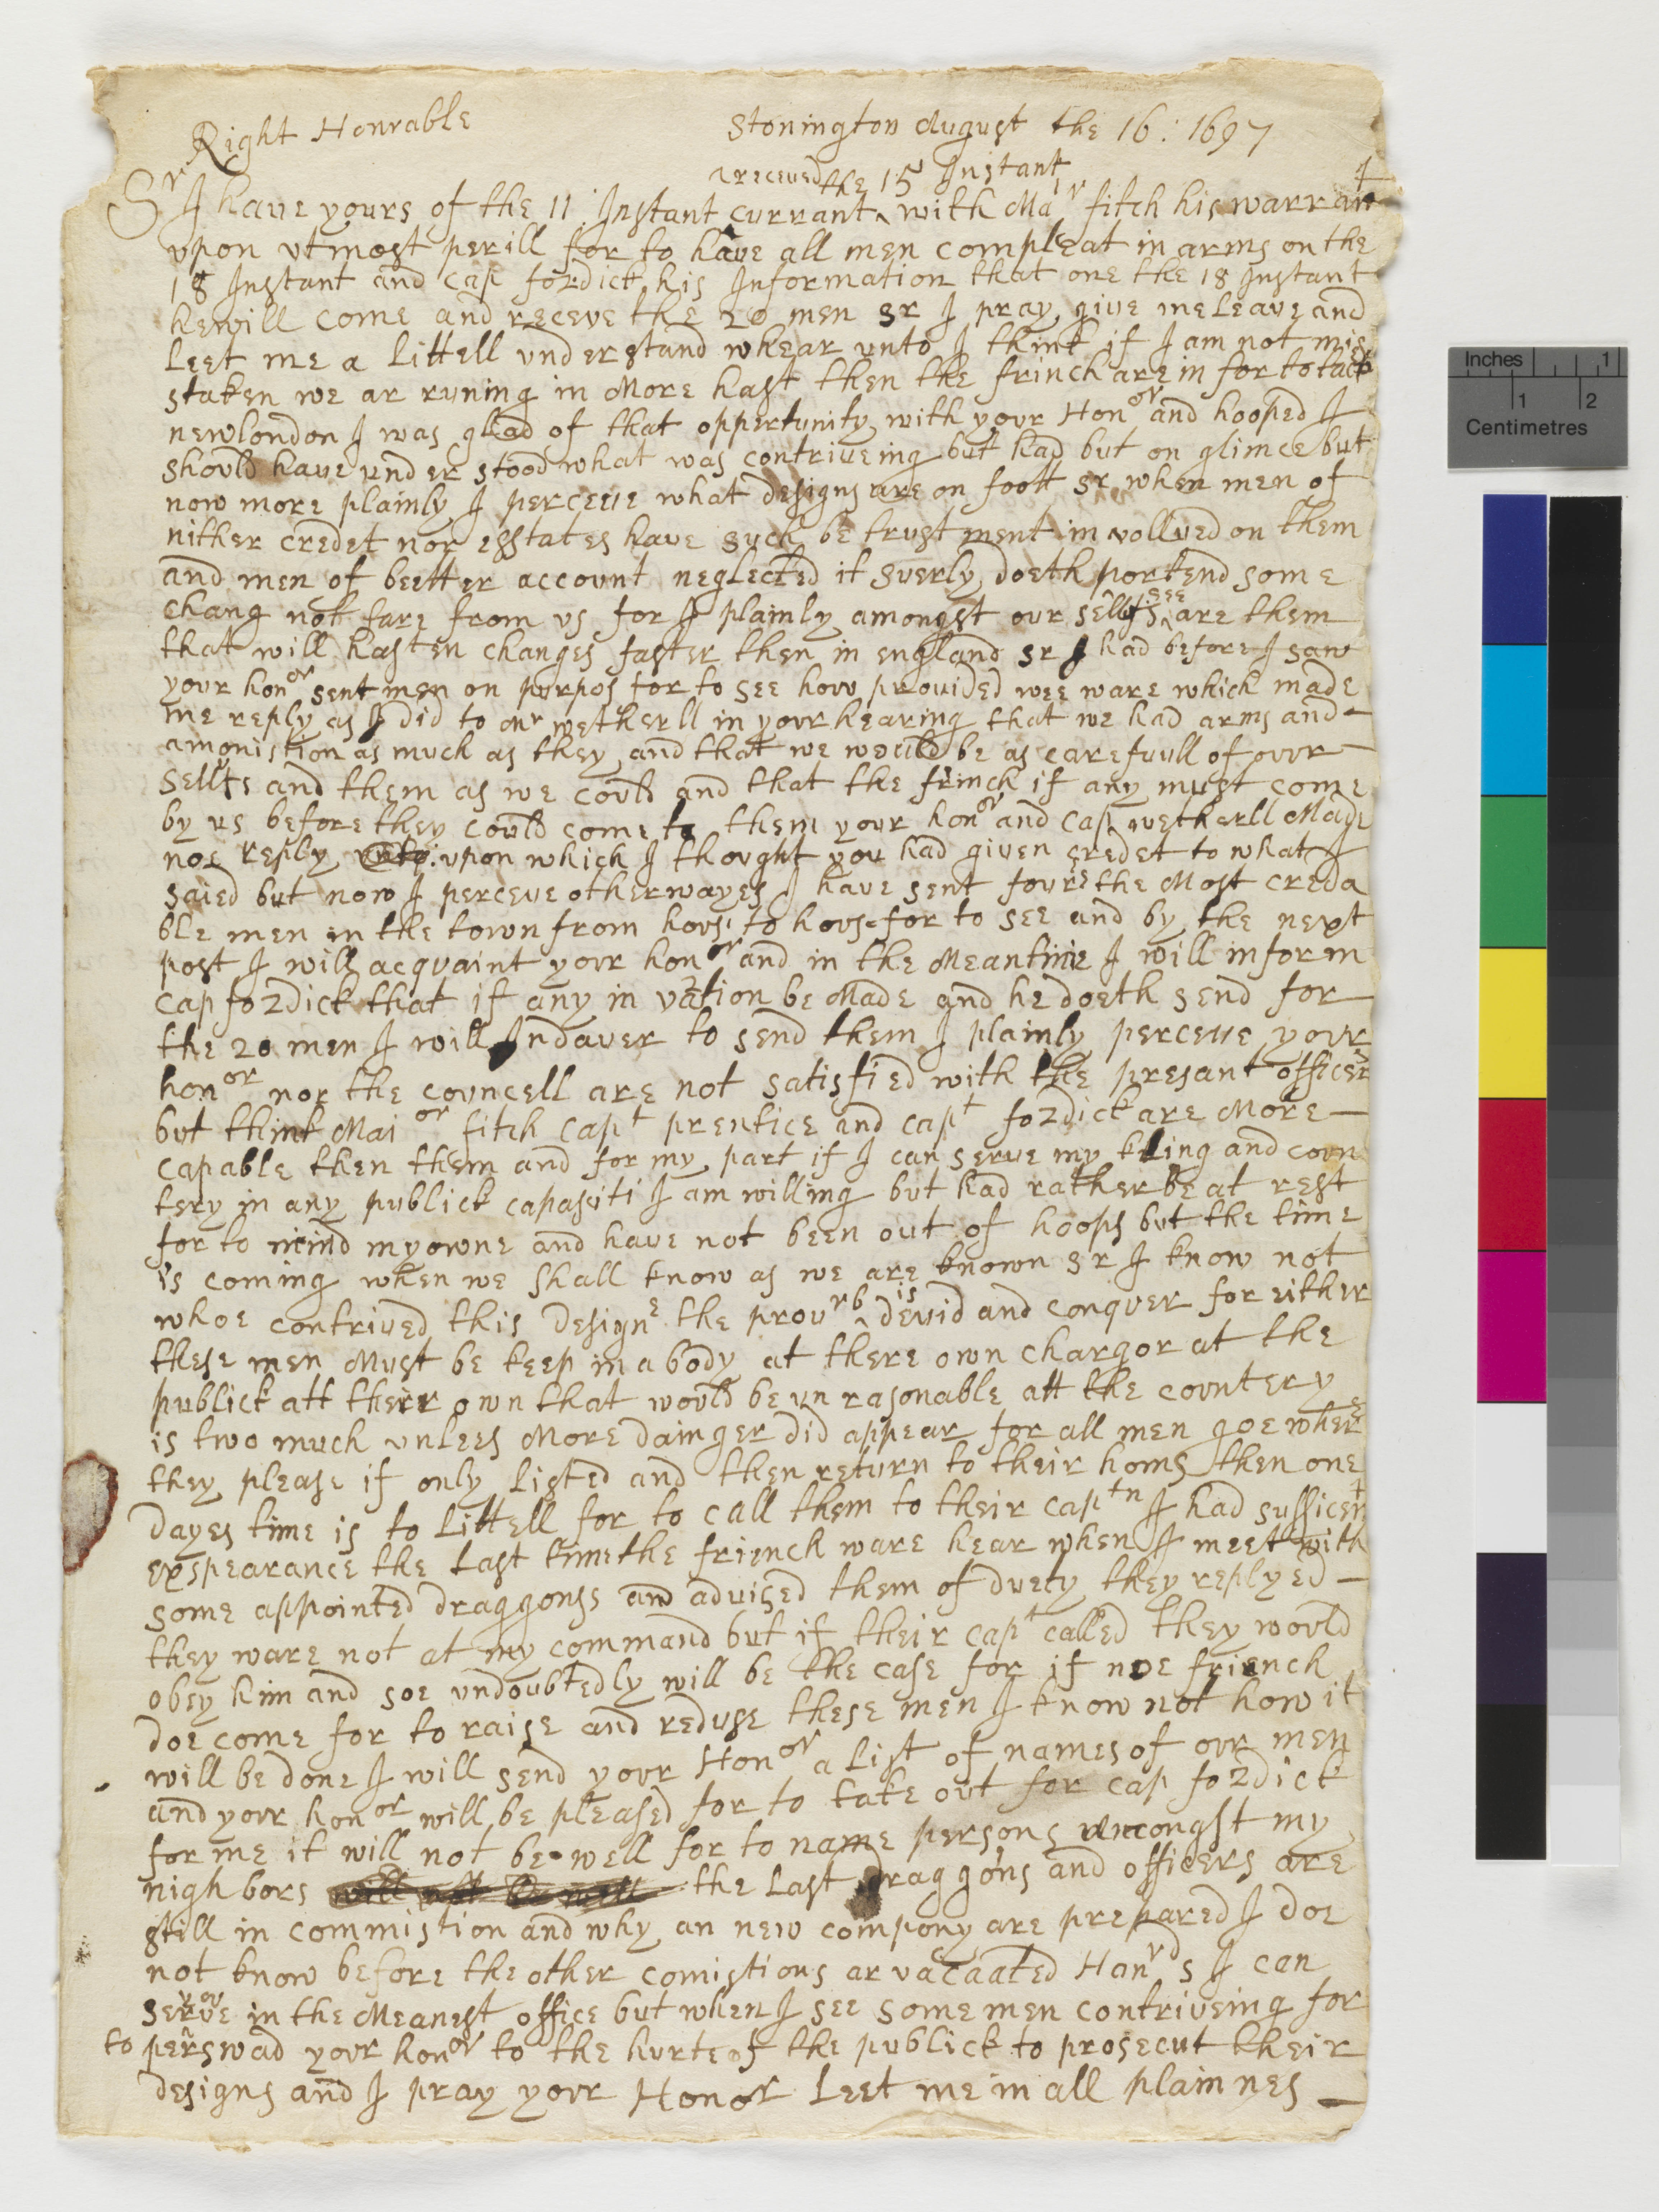 Right Honrable Stonington August the 16: 1697
receued the 15 Instant
Sr I haue yours of the 11 Instant currant ^ with Mar fitch his warrant
vpon vtmost perill for to haue all men compleat in arms on the
18 Instant and Cap fozdick his Information that one the 18 Instant
he will come and receve the 20 men sr I pray giue me leaue and
leet me a littell vnderstand whear vnto I think if I am not mis
staken we ar runing in More hast then the frinch are in for to tack
newlondon I was glad of that oppertunity with your Honor and hooped I
should haue under stood what was contriueing but had but on glimce but
now more plainly I perceue what designs are on foott sr when men of
nither credet nor esstates haue such be trust ment in vollued on them
and men of beetter account neglected it suerly doeth portend som e
chang not fare from us for I plainly amongst our sellfs ^ see are them
that will hasten changes faster then in england sr I had before I saw
your honor sent men on purpos for to see how prouided wee ware which made
me reply as I did to mr wetherll in your hearing that we had arms and
amonistion as much as they and that we would be as carefuull of our
sellfs and them as we could and that the frinch if any must come
by us before they could come to them your honor and Cap wetherll Made
noe reply unto: vpon which I thought you had given credet to what I
saied but now I perceue otherwayes I have sent foure the Most creda
ble men in the town from hous to house for to see and by the next
post I will acquaint your honor and in the Meantime I will inform
Cap fozdick that if any in vation be Made and he doeth send for
the 20 men I will Indaver to send them I plainly perceue your
honor nor the councell are not satisfied with the presant officers
but think Maior fitch Capt prentice and Capt fozdick are More
capable then them and for my part if I can serue my king and coun
tery in any publick capasiti I am willing but had rather be at rest
for to mind my owne and have not been out of hoops but the time
is coming when we shall know as we are known sr I know not
whoe contriued this designe the prourb ^ is deuid and conquer for either
these men Must be keep in a body at there own charg or at the
publick att their own that would be un rasonable att the countery
is two much vnlees More dainger did appear for all men goe where
they please if only listed and then return to their homs then one
dayes time is to littell for to call them to their captn I had sufficent
exspearance the last time the frinch ware hear when I meet with
some appointed draggonss and aduised them of duety they replyed
they ware not at my command but if their capt called they would
obey him and soe undoubtedly will be the case for if noe frinch
doe come for to raise and reduse these men I know not how it
will be done I will send your Honor a list of names of our men
and your honor will be pleased for to take out for cap fozdick
for me it will not be well for to name persons amongst my
nighbors will not be well the last draggons and officers are
still in commistion and why an new compony are prepared I doe
not know before the other comistions ar vacaated Honrd s I can
serve in the Meanest office but when I see some men contriueing for
to perswad your honor to the hurte of the publick to prosecut their
designs and I pray your Honor leet me in all plainnes